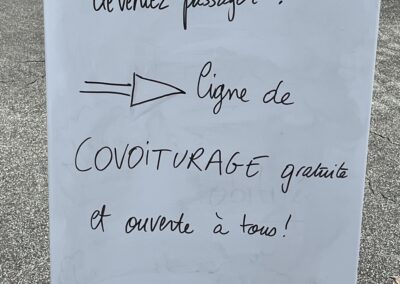 devenez passager !
⇒ ligne de
COVOITURAGE gratuite
et ouverte à tous !